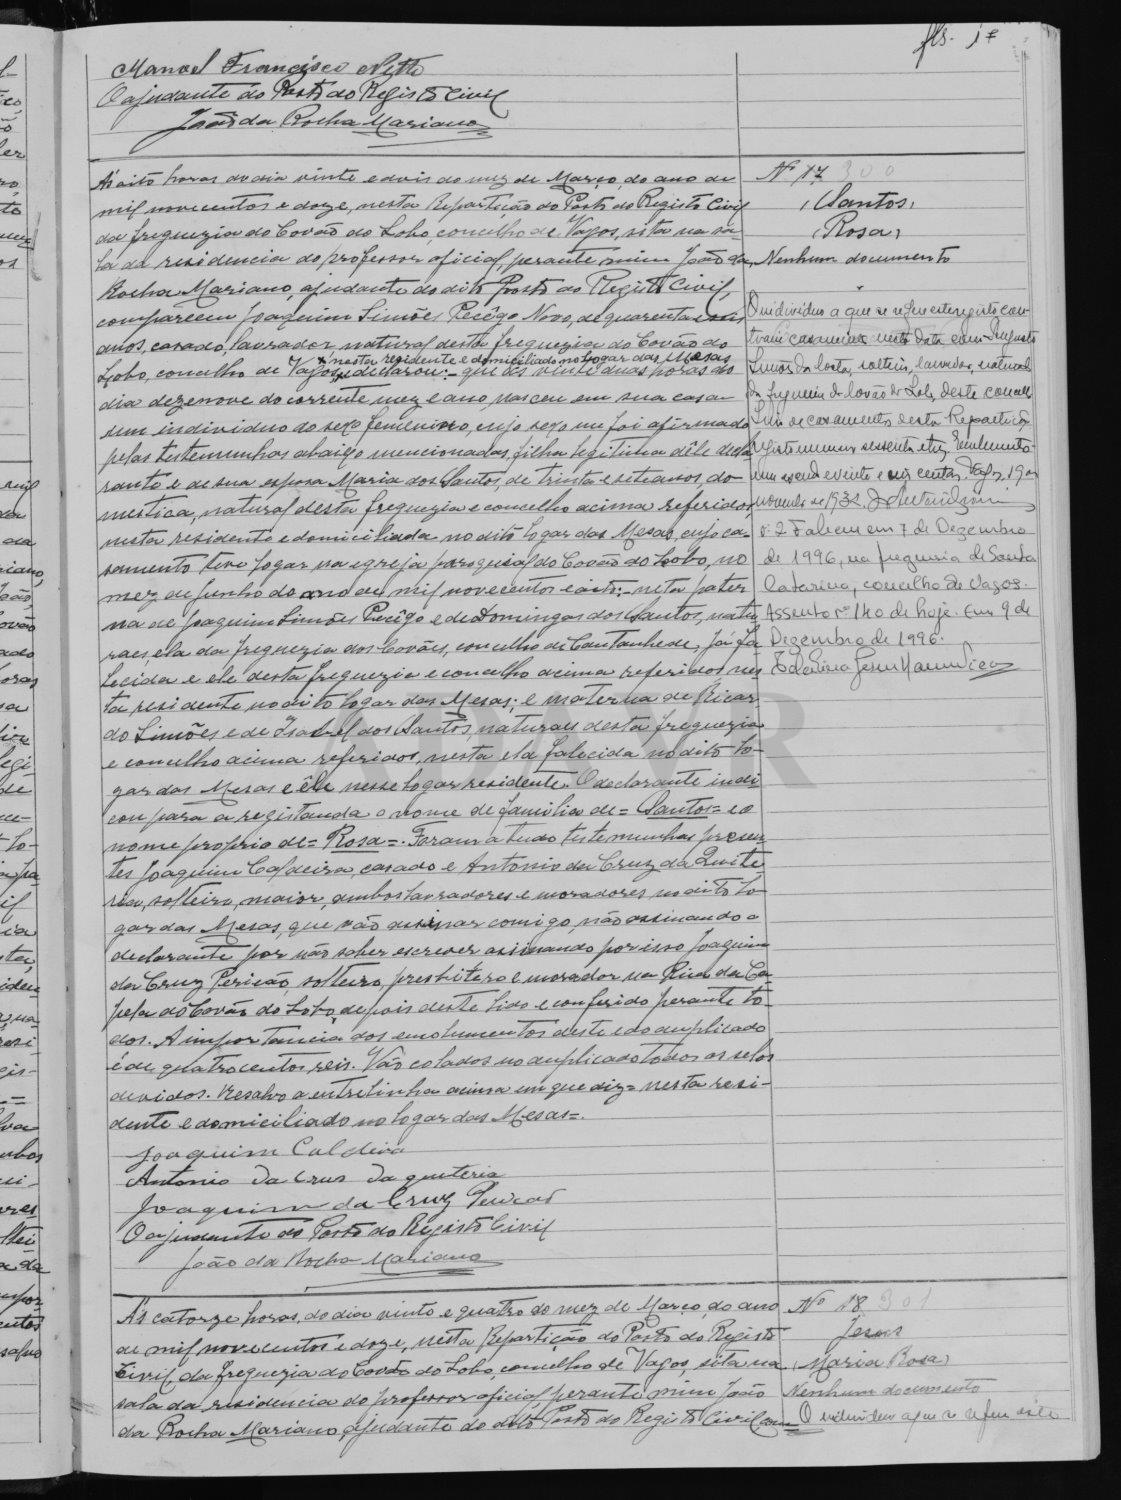 fls. 17
Manoel Francisco Netto
O ajudante do Posto do Registo Civil
João da Rocha Mariano
Nº 17 300
(Santos)
(Rosa)
Nenhum documento
Ás oito horas do dia vinte e dois do mez de Março, do ano de
mil novecentos e doze, nesta Repartição do Posto do Registo Civil
da freguezia do Covão do Lobo, concelho de Vagos, sita na sa-
la da residencia do professor oficial, perante mim João da
Rocha Mariano, ajudante do dito Posto do Registo Civil,
compareceu Joaquim Simões Pecêgo Novo, de quarenta e
anos, casado, lavrador, natural desta freguezia do Covão do
nesta residente e domiciliado no logar das Mesas
Lobo, concelho de Vagos, e declarou: - que ás vinte duas horas do
dia dezenove do corrente mez e ano, nasceu em sua casa
um individuo do sexo femenino, cujo sexo me foi afirmado
pelas testemunhas abaixo mencionadas, filha legitima dêle decla-
rante e de sua esposa Maria dos Santos, de trinta e sete anos, do-
mestica, natural desta freguezia e concelho acima referidos,
nesta residente e domiciliada no dito logar das Mesas, cujo ca-
samento teve logar na egreja paroquial do Covão do Lobo, no
mez de Junho do ano de mil novecentos e oito: - neta pater
na de Joaquim Simões Pecêgo e de Domingas dos Santos, natu
raes, ela da freguezia dos Covões, concelho de Cantanhede, já fa
lecida e ele desta freguezia e concelho acima referidos, nes
ta residente, no dito logar das Mesas; e materna de Ricar-
do Simões e de Isabel dos Santos, naturaes desta freguezia
e concelho acima referidos, nesta ela falecida no dito lo-
gar das Mesas e êle nesse logar residente. O declarante indi
cou para a registanda o nome de familia de = Santos = e o
nome proprio de = Rosa =. Foram a tudo testemunhas presen-
tes Joaquim Caldeira, casado e Antonio da Cruz da Quite
ria, solteiro, maior, ambos lavradores e moradores no dito lo
gar das Mesas, que vão assinar comigo, não assinando o
declarante por não saber escrever assinando por isso Joaquim
da Cruz Pericão, solteiro, presbitero e morador na Rua da Ca
pela do Covão do Lobo, depois deste lido e conferido perante to-
dos. A importancia dos emolumentos deste e do duplicado
é de quatrocentos reis. Vão colados no duplicado todos os selos
devidos. Resalvo a entrelinha acima em que diz = nesta resi-
dente e domiciliado no logar das Mesas =.
Joaquim Caldeira
Antonio da Crus da quiteria
Joaquim da Cruz Pericão
O ajudante do Posto do Registo Civil
João da Rocha Mariano
O individuo a que se refere este registo con-
traiu casamento nesta data com
Simões da Costa, solteiro, lavrador, natural
da freguezia do Covão do Lobo, deste concelho
de casamentos desta Repartição
registo numero sessenta e tres.
Vagos, 19 de
novembro de 1932.
nº 2 Faleceu em 7 de Dezembro
de 1996, na freguesia de Santa
Catarina, concelho de Vagos.
Assento nº 140 de hoje. Em 9 de
Dezembro de 1996.
Nº 18 301
Jesus
(Maria Rosa)
Nenhum documento
O individuo a que se refere este
Ás catorze horas, do dia vinte e quatro do mez de Março do ano
de mil novecentos e doze, nesta Repartição do Posto do Registo
Civil, da freguezia do Covão do Lobo, concelho de Vagos, sita na
sala da residencia do professor oficial, perante mim João
da Rocha Mariano, ajudante do dito Posto do Registo Civil, com-